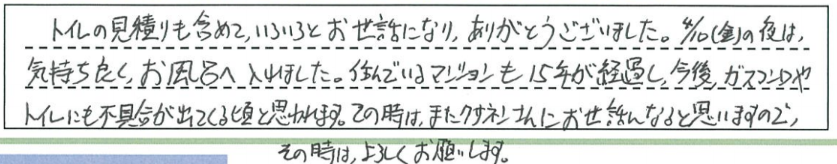 トイレの見積りも含めて、いろいろとお世話になり、ありがとうございました。4/10(金)の夜は、
気持ち良く、お風呂へ入れました。住んでいるマンションも15年が経過し、今後、ガスコンロや
トイレにも不具合が出てくる頃と思われます。その時は、またクサネンさんにお世話んなると思いますので、
その時は、よろしくお願いします。